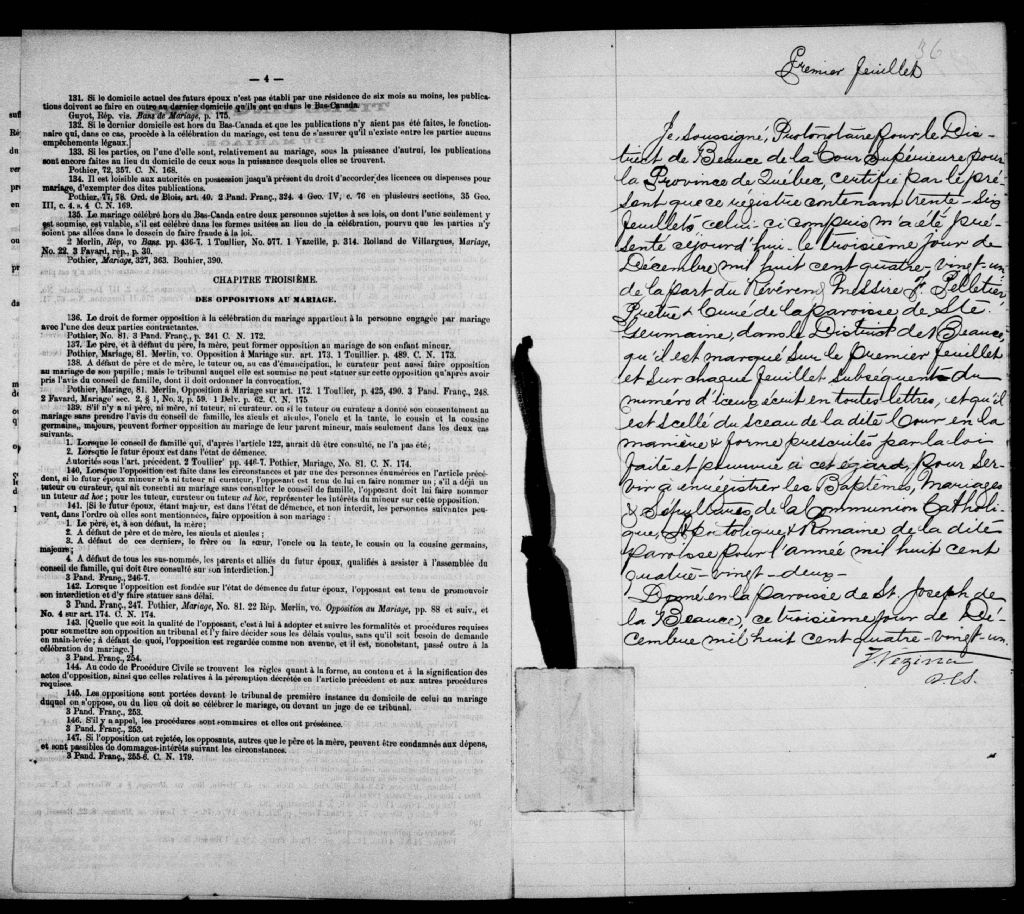 — 4 —
131. Si le domicile actuel des futurs époux n'est pas établi par une résidence de six mois au moins, les publica-
tions doivent se faire en outre au dernier domicile qu'ils ont eu dans le Bas-Canada.
Guyot, Rép. vis. Bans de Mariage, p. 175.
132. Si le dernier domicile est hors du Bas-Canada et que les publications n'y aient pas été faites, le fonction-
naire qui, dans ce cas, procède à la célébration du mariage, est tenu de s'assurer qu'il n'existe entre les parties aucun
empêchements légaux.]
133. Si les parties, ou l'une d'elle sont, relativement au mariage, sous la puissance d'autrui, les publications
sont encore faites au lieu du domicile de ceux sous la puissance desquels elles se trouvent.
Pothier, 72, 357. C. N. 168.
134. Il est loisible aux autorités en possession jusqu'à présent du droit d'accorder des licences ou dispenses pour
mariage, d'exempter des dites publications.
Pothier, 77, 78. Ord. de Blois, art. 40. 2 Pand. Franç., 324. 4 Geo. IV, c. 76 en plusieurs sections, 35 Geo.
III, c. 4. s. 4 C. N. 169.
135. Le mariage célébré hors du Bas-Canda entre deux personnes sujettes à ses lois, ou dont l'une seulement y
est soumise, est valable, s'il est célébré dans les formes usitées au lieu de la célébration, pourvu que les parties n'y
soient pas allées dans le dessein de faire fraude à la loi.
2 Merlin, Rép, vo Bans. pp. 436-7. 1 Toullier, No. 577. 1 Vazeille, p. 314. Rolland de Villargues, Mariage,
No. 22. 3 Favard, rép., p. 30.
Pothier, Mariage, 327, 363. Bouhier, 390.
CHAPITRE TROISIÈME.
DES OPPOSITIONS AU MARIAGE.
136. Le droit de former opposition à la célébration du mariage appartient à la personne engagée par mariage
avec l'une des deux parties contractantes.
Pothier, No. 81. 3 Pand. Franç., p. 241 C. N. 172.
137. Le père, et à défaut du père, la mère, peut former opposition au mariage de son enfant mineur.
Pothier, Mariage, 81. Merlin, vo. Opposition à Mariage sur. art. 173. 1 Touillier. p. 489. C. N. 173.
138. A défaut de père et de mère, le tuteur ou, au cas d'émancipation, le curateur peut aussi faire opposition
au mariage de son pupille; mais le tribunal auquel elle est soumise ne peut statuer sur cette opposition qu'après avoir
pris l'avis du conseil de famille, dont il doit ordonner la convocation.
Pothier, Mariage, 81. Merlin, Opposition à Mariage sur art. 172. 1 Toullier, p. 425, 490. 3 Pand. Franç., 248.
2 Favard, Mariage' sec. 2, § 1, No. 3, p. 59. 1 Delv. p. 62. C. N. 175
139. S'il n'y a ni père, ni mère, ni tuteur, ni curateur, ou si le tuteur ou curateur a donné son consentement au
mariage sans prendre l'avis du conseil de famille, les aïeuls et aïeules, l'oncle et la tante, le cousin et la cousine
germains,, majeurs, peuvent former opposition au mariage de leur parent mineur, mais seulement dans les deux cas
suivants.
1. Lorsque le conseil de famille qui, d'après l'article 122, aurait dû être consulté, ne l'a pas été;
2. Lorsque le futur époux est dans l'état de démence.
Autorités sous l'art. précédent. 2 Toullier' pp. 446-7. Pothier, Mariage, No. 81. C. N. 174.
140. Lorsque l'opposition est faite dans les circonstances et par une des personnes énumérées en l'article précé-
dent, si le futur époux mineur n'a ni tuteur ni curateur, l'opposant est tenu de lui en faire nommer un; s'il a déjà un
tuteur ou curateur, qui ait consenti au mariage sans consulter le conseil de famille, l'opposant doit lui faire nommer
un tuteur ad hoc; pour les tuteur, curateur ou tuteur ad hoc, représenter les intérêts du mineur sur cette opposition.
141. [Si le futur époux, étant majeur, est dans l'état de démence, et non interdit, les personnes suivantes peu-
vent, dans l'ordre où elles sont mentionnées, faire opposition à son mariage :
1. Le père, et, à son défaut, la mère;
2. A défaut de père et de mère, les aïeuls et aïeules;
3. A défaut de ces derniers, le frère ou la sœur, l'oncle ou la tente, le cousin ou la cousine germains,
majeurs;
4. A défaut de tous les sus-nommés, les parents et alliés du futur époux, qualifiés à assister à l'assemblée du
conseil de famille, qui doit être consulté sur son interdiction.]
3 Pand. Franç., 246-7.
142. Lorsque l'opposition est fondée sur l'état de démence du futur époux, l'opposant est tenu de promouvoir
son interdiction et d'y faire statuer sans délai.
3 Pand. Franç., 247. Pothier, Mariage, No. 81. 22 Rép. Merlin, vo. Opposition au Mariage, pp. 88 et suiv., et
No. 4 sur art. 174. C. N. 174.
143. [Quelle que soit la qualité de l'opposant, c'est à lui à adopter et suivre les formalités et procédures requises
pour soumettre son opposition au tribunal et l'y faire décider sous les délais voulus, sans qu'il soit besoin de demande
en main-levée; à défaut de quoi, l'opposition est regardée comme non avenue, et il est, nonobstant, passé outre à la
célébration du mariage.]
3 Pand. Franç., 254.
144. Au code de Procédure Civile se trouvent les règles quant à la forme, au contenu et à la signification des
actes d'opposition, ainsi que celles relatives à la péremption décrétée en l'article précédent et aux autres procédures
requises.
145. Les oppositions sont portées devant le tribunal de première instance du domicile de celui au mariage
duquel on s'oppose, ou du lieu où doit se célébrer le mariage, ou devant un juge de ce tribunal.
3 Pand. Franç., 253.
146. S'il y a appel, les procédures sont sommaires et elles ont préséance.
3 Pand. Franç., 253.
147. Si l'opposition est rejetée, les opposants, autres que le père et la mère, peuvent être condamnés aux dépens,
et sont passibles de dommages-intérêts suivant les circonstances.
3 Pand. Franç., 255-6. C. N. 179.
36
Premier feuillet
Je, Soussigné, Protonotaire pour le Dis-
trict de Beauce de la Cour Supérieure pour
la Province de Québec, certifie par le pré-
sent que ce régistre contenant trente-six
feuillets, celui-ci compris m'a été pré-
senté ce jourd'hui le troisième jour de
Décembre mil huit cent quatre-vingt-un
de la part du Révérend Messire F. Pelletier
Prêtre & Curé de la paroisse de Ste
Germaine, dans le District de Beauce,
qu'il est marqué sur le Premier feuillet
et sur chaque feuillet subséquent du
numéro d'iceux écrit en toutes lettres, et qu'il
est scellé du sceau de la dite Cour en la
manière & forme prescrités par la loi
faite et pourvue à cet égard, pour ser-
vir à enrégistrer les Baptêmes, Mariages
& Sépultures de la Communion Catholi-
que, Apostolique & Romaine de la dite
paroisse pour l'année mil huit cent
quatre-vingt-deux-
Donné en la paroisse de St. Joseph de
la Beauce, ce troisième jour de Dé-
cembre mil huit cent quatre-vingt-un.
Vézina